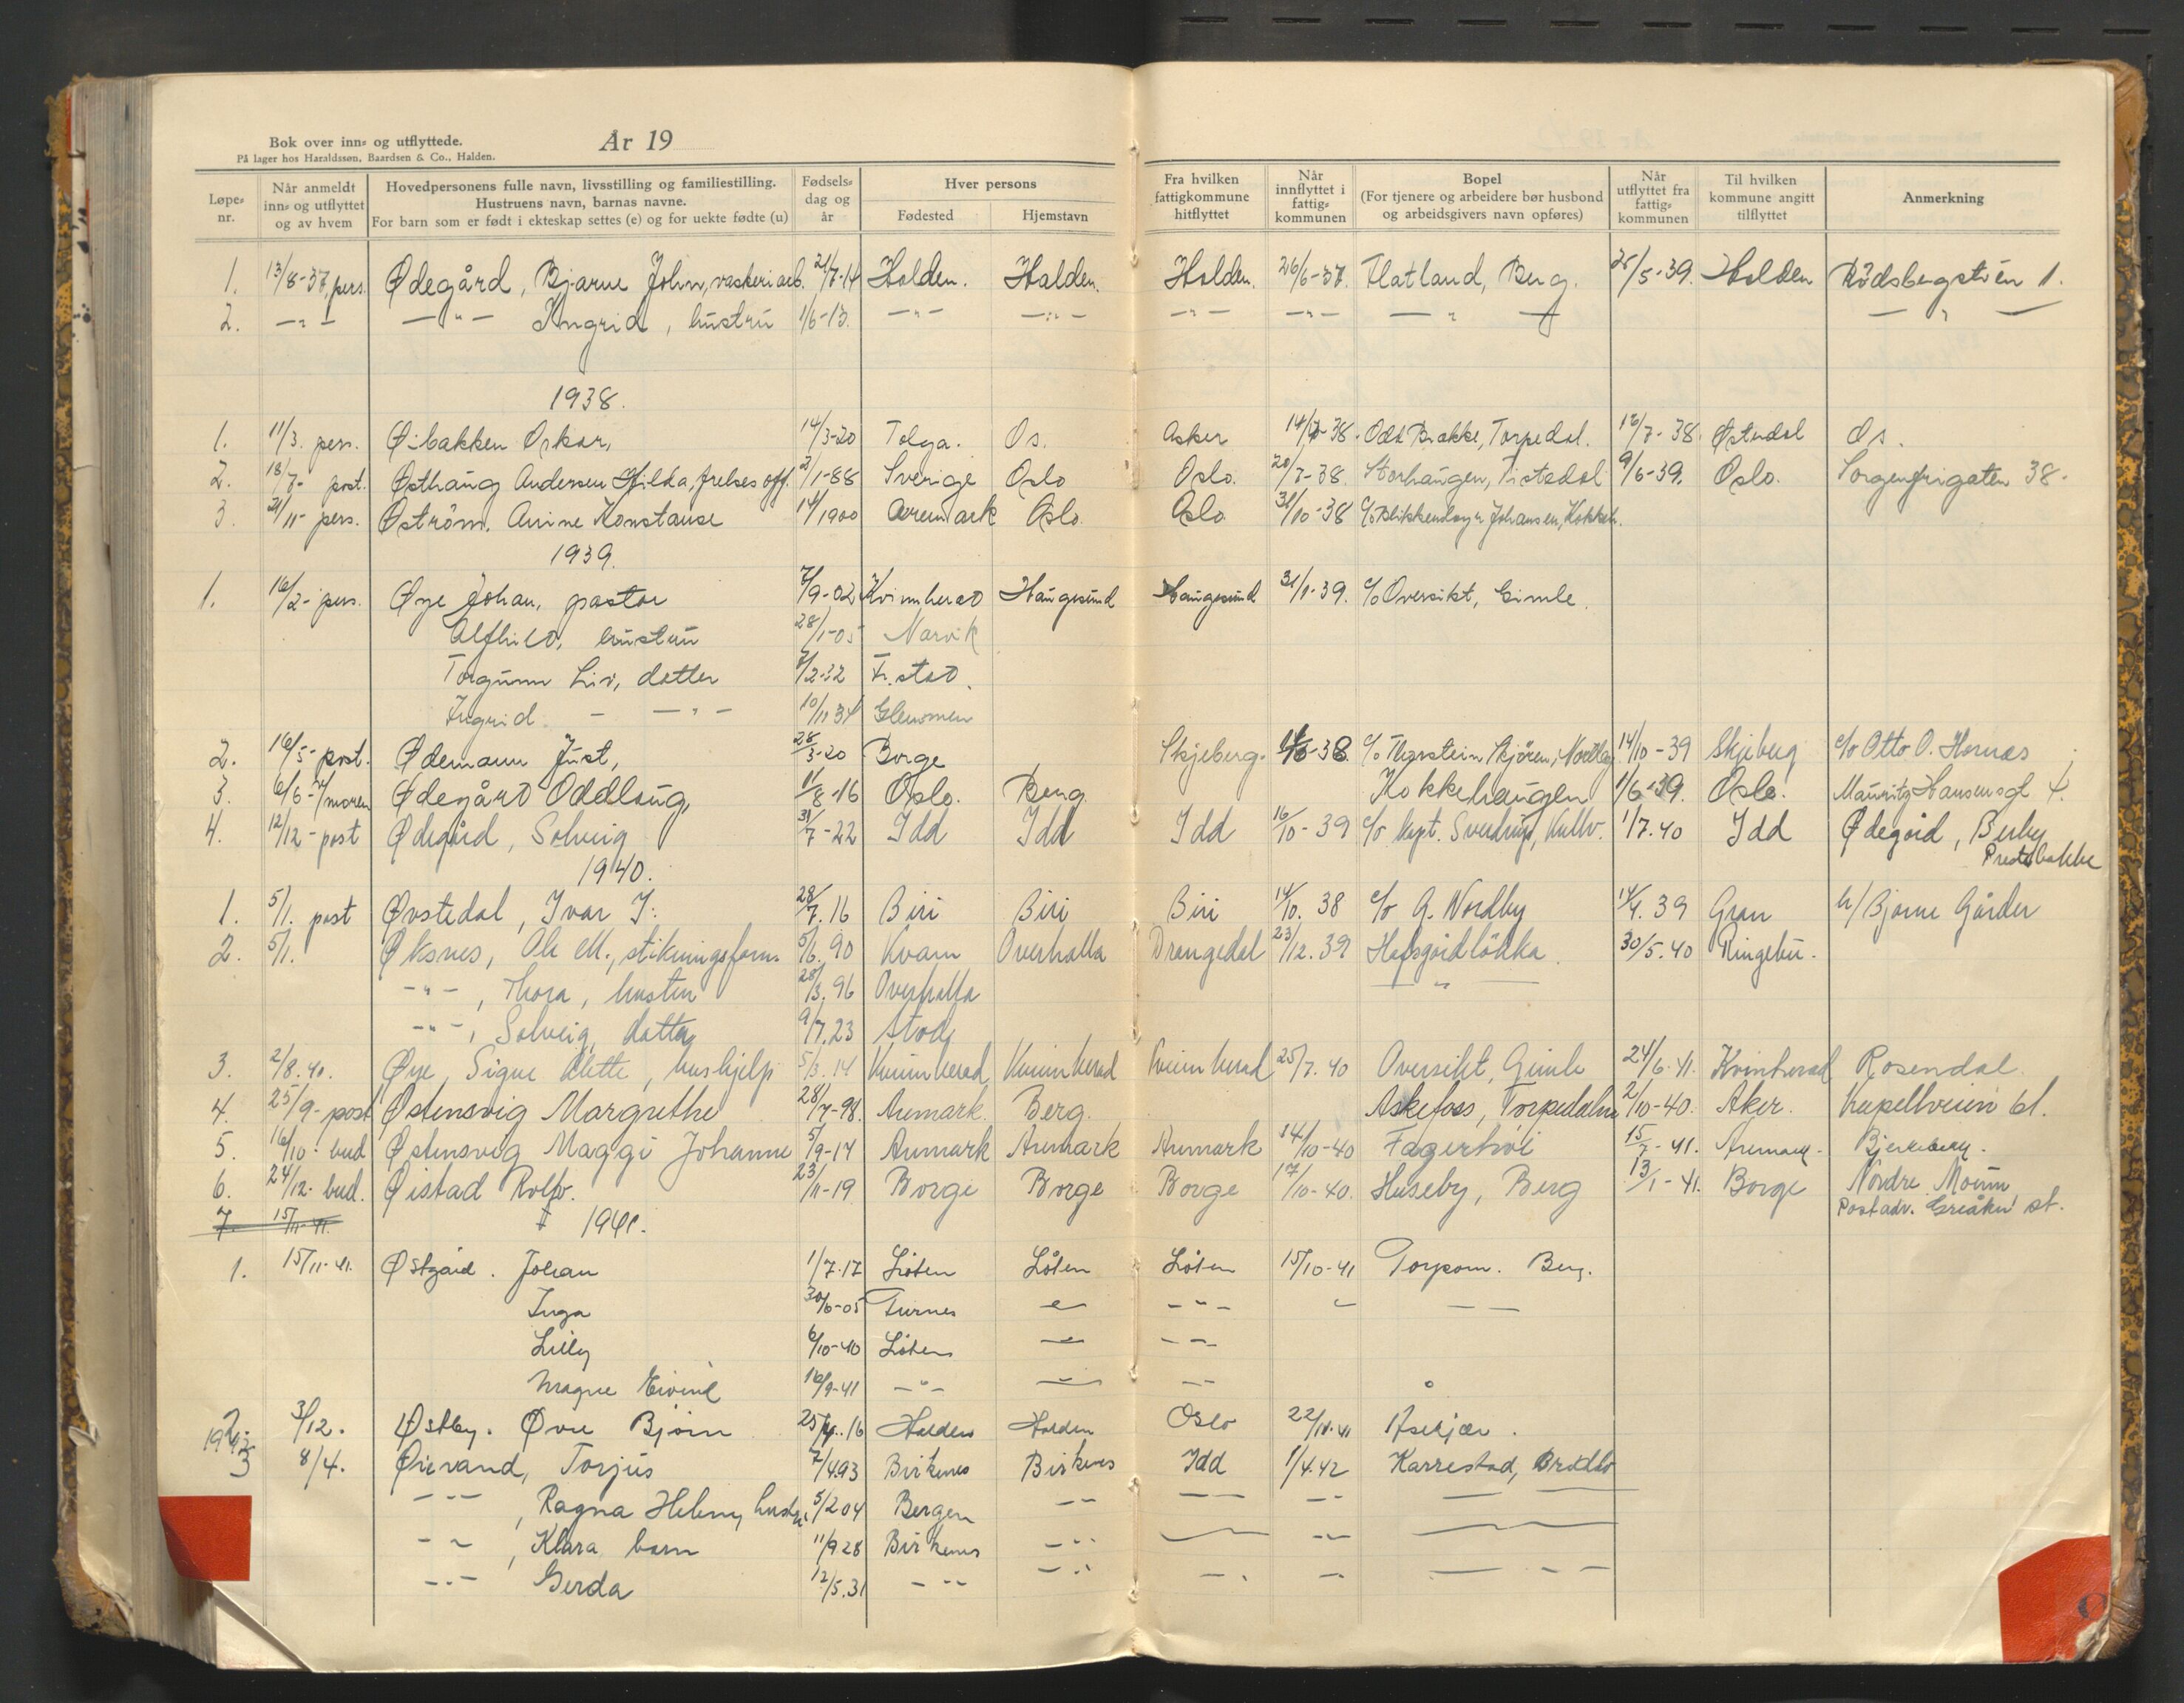 Bok over inn= og utflyttede.
På lager hos Haraldssøn, Baardsen & Co., Halden.
År 19
Løpe= nr. Når anmeldt inn= og utflyttet og av hvem Hovedpersonens fulle navn, livsstilling og familiestilling. Hustruens navn, barnas navne. For barn som er født i ekteskap settes (e) og for uekte fødte (u) Fødsels= dag og år Hver persons Fødested Hjemstavn Fra hvilken fattigkommune hitflyttet Når innflyttet i fattig= kommunen Bopel (For tjenere og arbeidere bør husbond og arbeidsgivers navn opføres) Når utflyttet fra fattig= kommunen Til hvilken kommune angitt tilflyttet Anmerkning
1. 13/8-37, pers. Ødegård, Bjarne John, vaskeriarb. 21/7-14 Halden. Halden. Halden. 26/6-37. Flatland, Berg. 25/5-39. Halden Rødsbergstien 1.
2. — " — — " — Ingrid, hustru 1/6-13. — " — — " — — " — — " — — " — — " —
1938.
1. 11/3. pers. Øibakken Oskar, 14/3-20 Tolga. Os. Asker Odd Bakke, Torpedal. 16/7-38. Østerdal Os.
2. 18/7- post. Østhaug Andersen Hilda, frelsesoff. 2/1-88 Sverige Oslo Oslo. 20/7-38. Storhaugen, Tistedal 9/6-39. Oslo. Sorgenfrigaten 38.
3. 21/11- pers. Øström. Anine Konstanse 14/1900 Aremark Oslo Oslo 31/10-38 c/o Blikkenslager Johansen, Kokkeh.
1939.
1. 16/2- pers. Øye Johan, pastor 7/9-02 Kvinnherad Haugesund Haugesund 31/1-39. c/o Oversikt, Gimle.
Alfhild, hustru 28/1-05 Narvik
Torgunn Liv, datter 7/2-32 Fr.stad.
Ingrid - — " — 10/11 34 Glemmen
2. 16/5- post. Ødemann Just, 28/3-20 Borge Skjeberg. c/o Thorstein Skjören, 14/10-39 Skjeberg c/o Otto O. Hornæs
3. 6/6- moren Ødegård Oddlaug, 11/8-16 Oslo. Berg Kokkehaugen 1/6-39. Oslo. Mauritz Hansensgt 4.
4. 12/12- post Ødegård, Solveig 31/7-22 Idd Idd Idd 16/10-39 c/o Kapt. Sverdrup, 1/7.40 Idd Ødegård, Berby Prestebakke
1940.
1. 5/1. post Øvstedal, Ivar J. 28/7.16 Biri Biri Biri 14/10.38 c/o A. Nordby 14/4.39 Gran h/Bjarne Gårder
2. 5/1. Øksnes, Ole M., stikningsform. 5/6.90 Kvam Overhalla Drangedal 23/12.39 Hafsgårdløkka. 30/5.40 Ringebu.
— " —, Thora, hustru 28/3.96 Overhalla — " —
— " —, Solveig, datter 9/7.23 Stod
3. 2/8.40. Øye, Signe Mette, hushjelp 5/3.14 Kvinnherad Kvinnherad Kvinnherad 25/7.40 Oversikt, Gimle 24/6-41. Kvinherad Rosendal.
4. 25/9- post Østensvig Margrethe 28/7-98. Aremark. Berg. Askefoss, Torpedalen 2/10-40. Aker. Kapellveien 61.
5. 16/10- bud Østensvig Maggi Johanne 5/9-14 Aremark Aremark Aremark 14/10-40 Fagerhøi 15/7-41. Aremark. Bjerkebekk.
6. 24/12- bud. Øistad Rolf. 23/11-19 Borge Borge Borge 17/10-40. Huseby, Berg 13/1-41. Borge Nordre Moum Postadr. Greåker st.
7. 15/11-41. 1941.
1. 15/11-41. Østgård. Johan 1/7-17 Løten Løten Løten 15/10-41 Torpom. Berg.
Inga 30/6-05 Furnes — " —
Lilly 6/10-40 Løten
Magne Eivind 16/9-41 — " —
2. 3/12. Østby. Øvre Bjørn 25/4.16 Halden Halden Oslo 22/11.41 Asekjær.
1942 3 8/4. Øievand, Torjus 7/4 93 Birkenes Birkenes Idd 1/4.42 Karrestad,
— " —, Ragna Helene, hustru 5/2 04 Bergen — " —
— " —, Klara barn 11/9 28 Birkenes — " —
— " — Gerda 12/5.31 — " — — " —